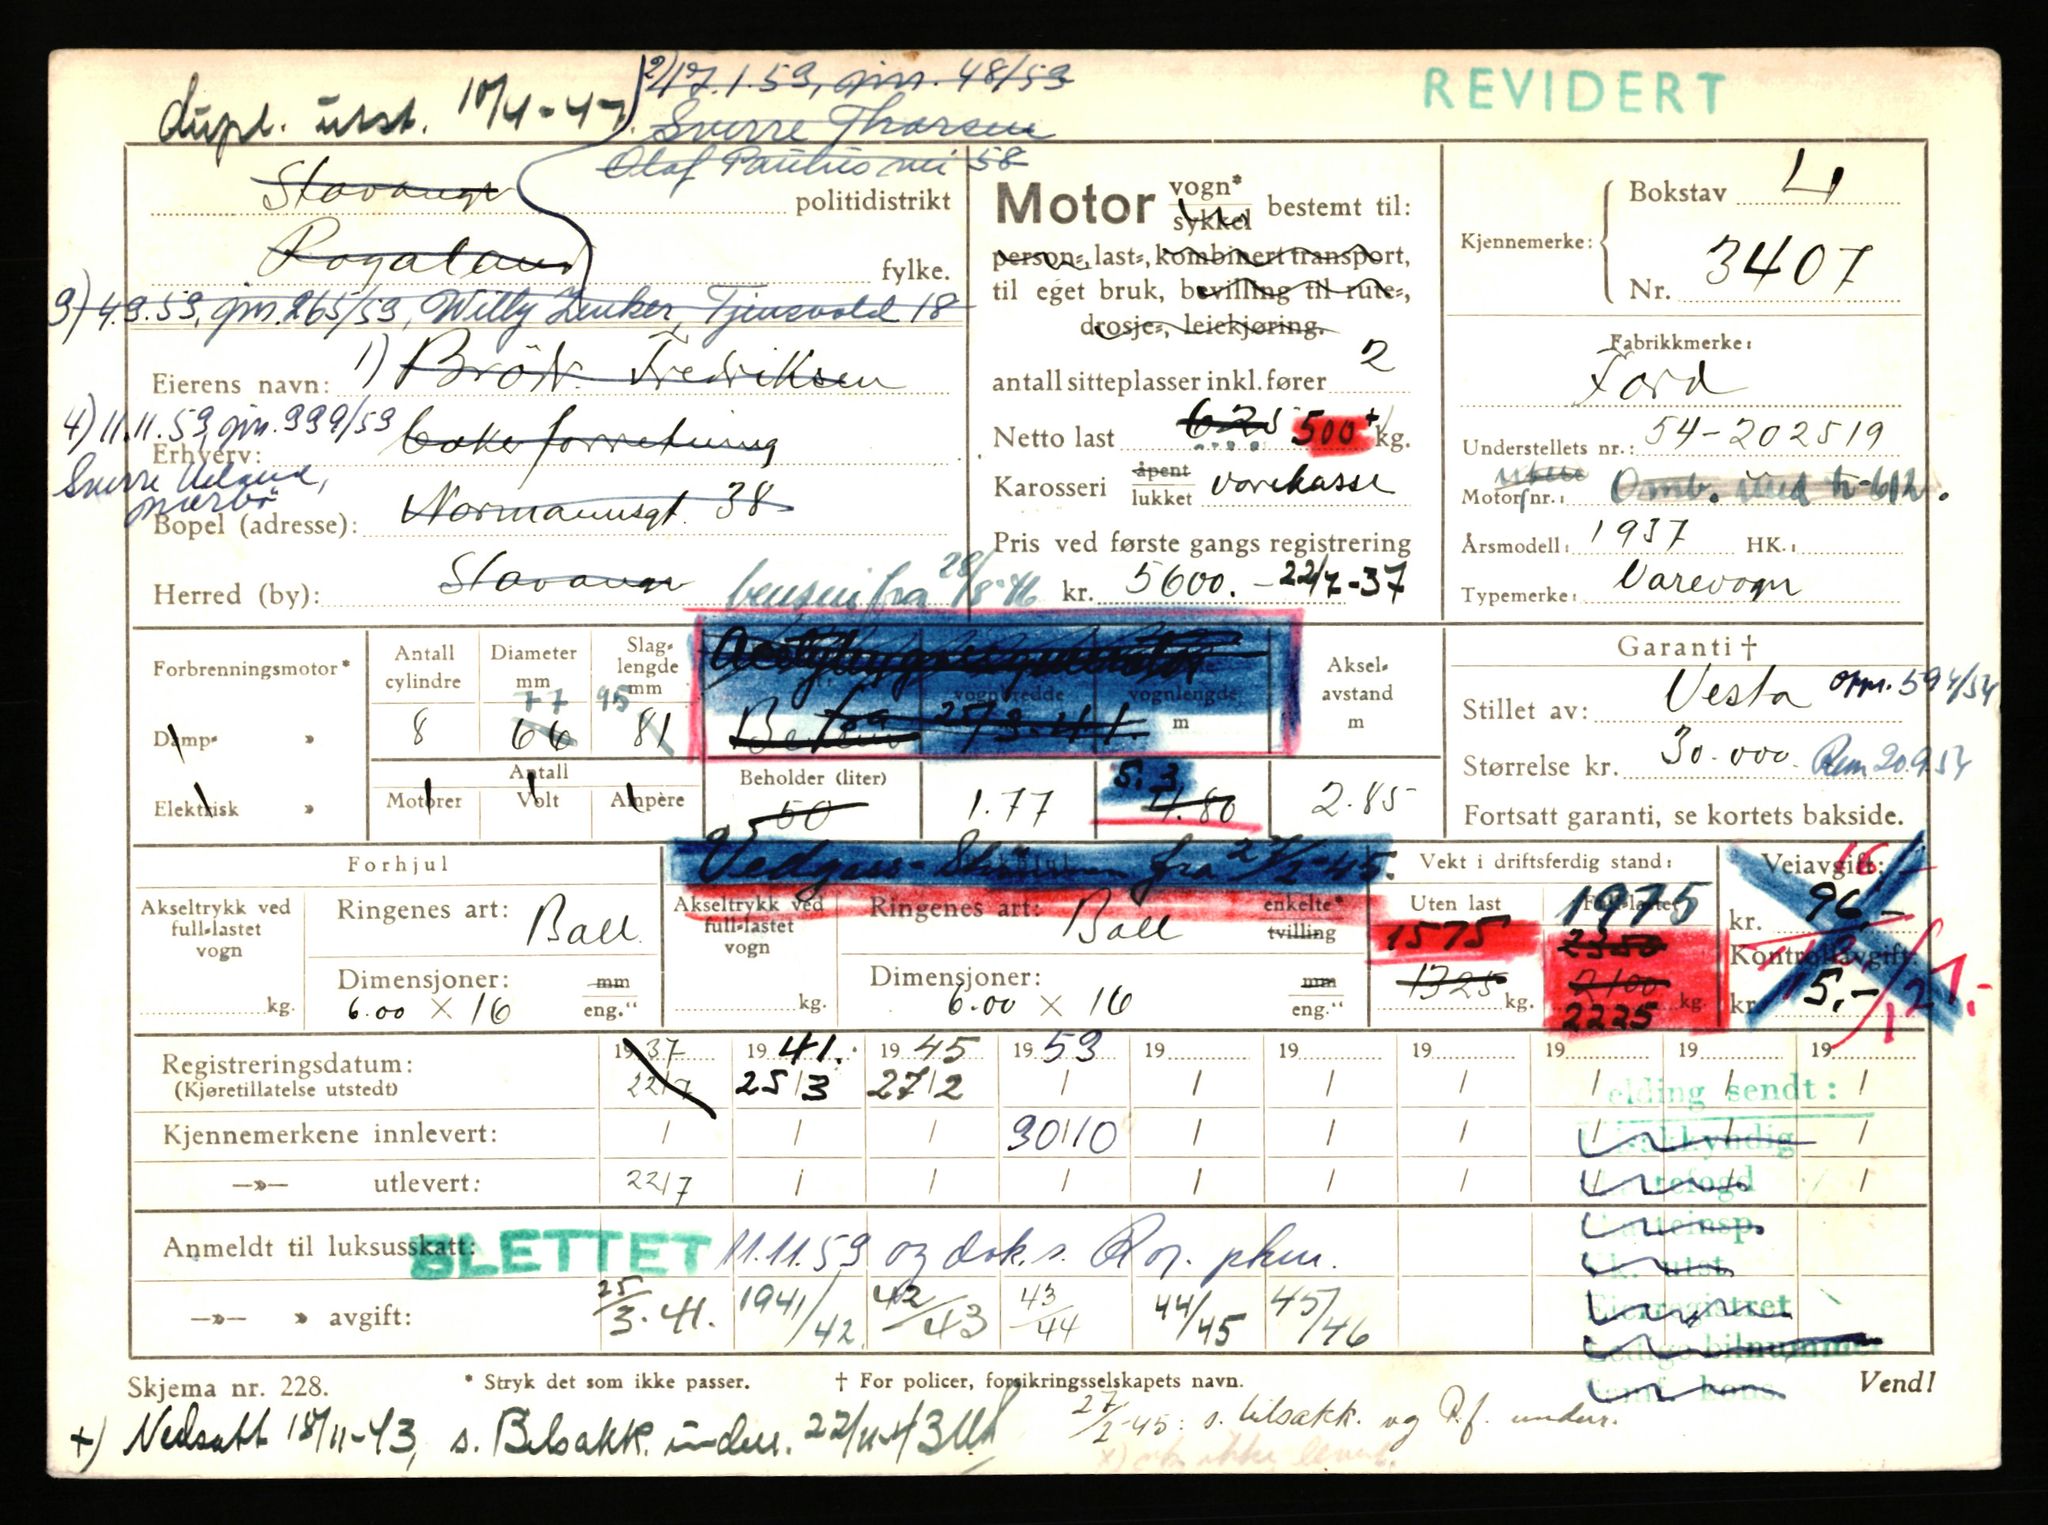 REVIDERT
dupl. utst. 10/4-47.
2) 17.1.59, 48/59
Sverre Thorsen
Olaf Paulus vei 58
Stavanger politidistrikt
Rogaland fylke.
3) 4.9.59, 265/59, Willy Zenker, Tjensvold 18
Eierens navn: 1) Brödr. Fredriksen
4) 11.11.59, 999/59
Erhverv: bakerforretning
Sverre
Bopel (adresse): Normannsgt. 38
Herred (by): Stavanger
bensin fra 28/8-46
Motor vogn* sykkel bestemt til:
person-, last-, kombinert transport,
til eget bruk, bevilling til rute-,
drosje-, leiekjøring.
antall sitteplasser inkl. fører 2
Netto last 625 500 + kg.
Karosseri åpent lukket varekasse
Pris ved første gangs registrering
kr. 5600. - 22/7-37
Kjennemerke: Bokstav L
Nr. 3407
Fabrikkmerke:
Ford
Understellets nr.: 54-202519
Motor nr.: Omb.
Årsmodell: 1937 HK.:
Typemerke: Varevogn
Forbrenningsmotor*
Damp- »
Elektrisk »
Antall cylindre 8
Diameter mm 77 66
Slaglengde mm 95 81
Antall
Motorer Volt Ampère
vognbredde
vognlengde
m
Bensin fra 25/3-41.
Akselavstand m
Beholder (liter)
50
1.77
5.3
4.80
2.85
Garanti †
Stillet av: Vesta 594/54
Størrelse kr. 30.000. 20.9.54
Fortsatt garanti, se kortets bakside.
Vedgass fra 27/2-45.
Forhjul
Akseltrykk ved full-lastet vogn kg.
Ringenes art: Ball.
Dimensjoner: mm eng."
6.00 x 16
Akseltrykk ved full-lastet vogn kg.
Ringenes art: Ball enkelte* tvilling
Dimensjoner: mm eng."
6.00 x 16
Vekt i driftsferdig stand:
Uten last
1575
1325 kg.
1975
2350
2100 kg.
2225
Veiavgift:
kr. 96,-
Kontrollavgift:
kr. 5.-
Registreringsdatum: 19 37 19 41. 19 45 19 53 19 19 19 19 19 19
(Kjøretillatelse utstedt) 22/7 25/3 27/2
Kjennemerkene innlevert: 30/10
—»— utlevert: 22/7
elding sendt:
Anmeldt til luksusskatt: BLETTET 11.11.59 og dok. s.
—»— » avgift: 25/3-41. 1941/42 42/43 43/44 44/45 45/46
Skjema nr. 228.
* Stryk det som ikke passer.
† For policer, forsikringsselskapets navn.
Vend!
+) Nedsatt 18/11-43, s. Bilsakk. under. 22/11-43
27/2-45: s. bilsakk. og P.f. under.